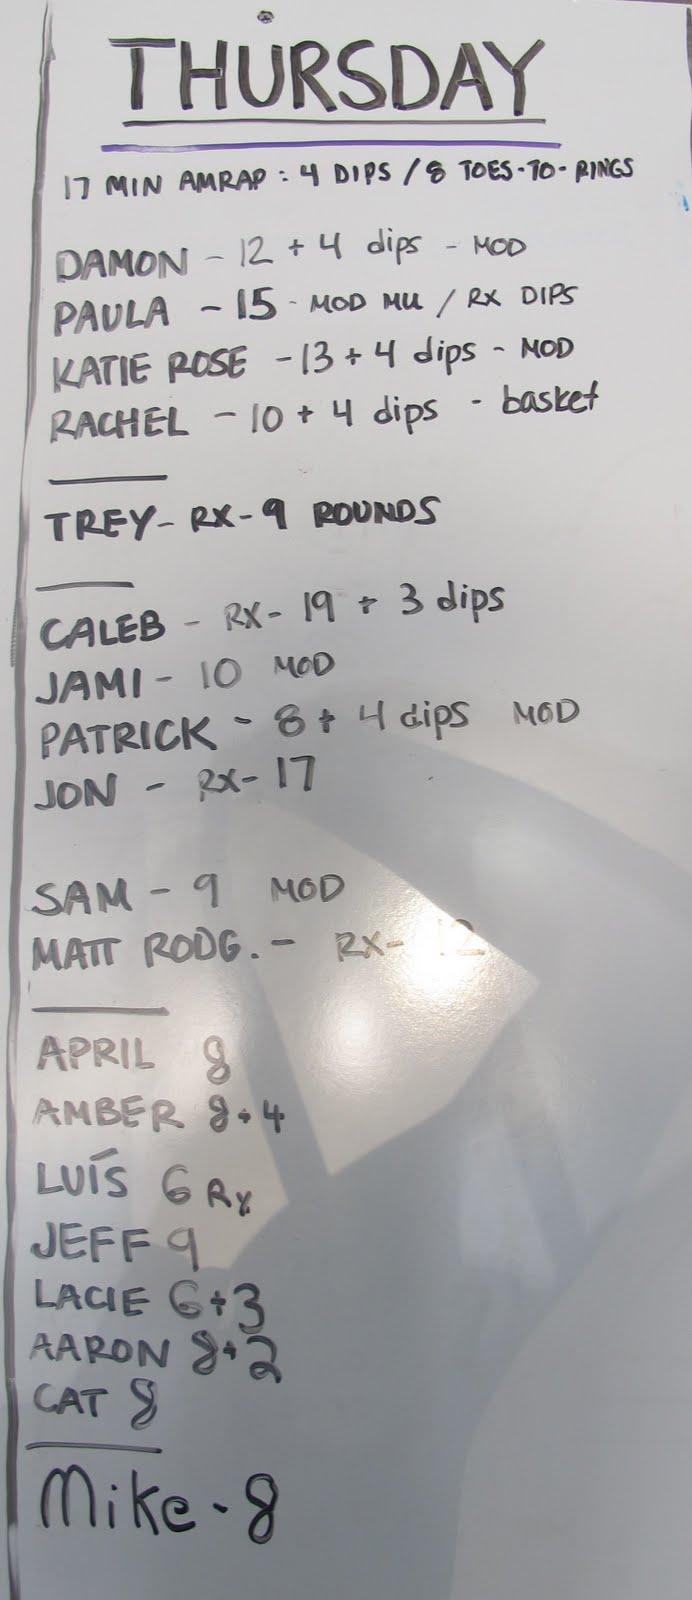 THURSDAY
17 MIN AMRAP: 4 DIPS / 8 TOES-TO-RINGS
DAMON - 12 + 4 dips - MOD
PAULA - 15 - MOD MU / RX DIPS
KATIE ROSE - 13 + 4 dips - MOD
RACHEL - 10 + 4 dips - basket
TREY - RX - 9 ROUNDS
CALEB - RX - 19 + 3 dips
JAMI - 10 MOD
PATRICK - 8 + 4 dips MOD
JON - RX - 17
SAM - 9 MOD
MATT RODG. - RX - 12
APRIL 8
AMBER 8+4
LUÍS 6 Rx
JEFF 9
LACIE 6+3
AARON 8+2
CAT 8
Mike - 8